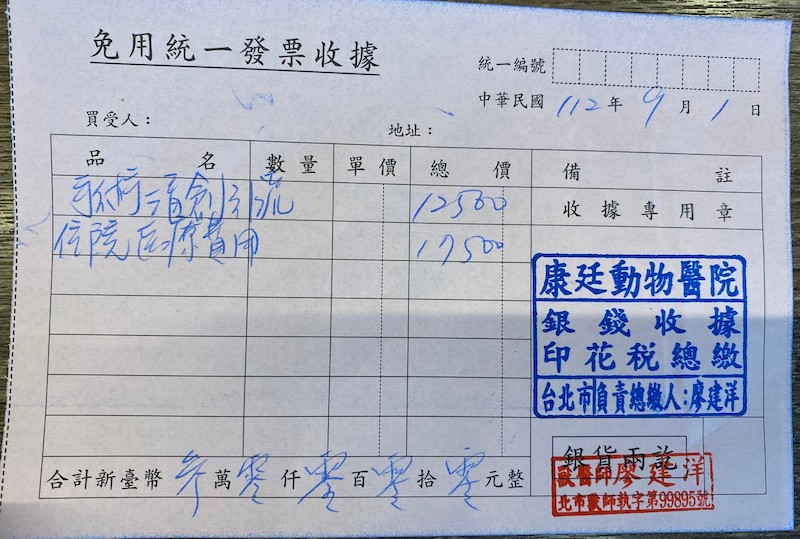 免用統一發票收據
統一編號
中華民國 112 年 9 月 1 日
買受人： 地址：
品名 數量 單價 總價 備註
手術清創引流 12500 收據專用章
住院医療費用 17500
康廷動物醫院
銀錢收據
印花税總繳
台北市負責總繳人：廖建洋
合計新臺幣 參 萬 零 仟 零 百 零 拾 零 元整
銀貨兩訖
獸醫師廖建洋
北市獸師執字第99895號